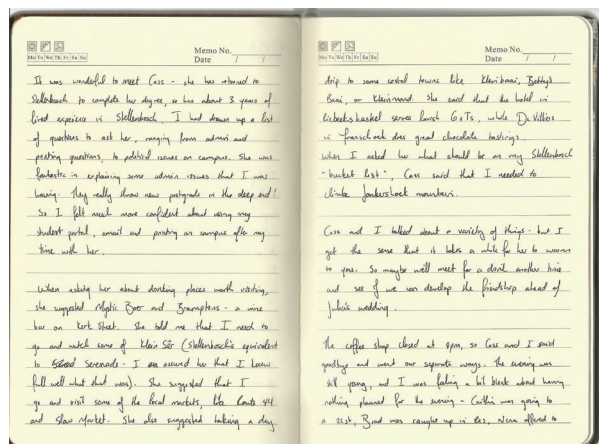 Memo No.
Mo Tu We Th Fr Sa Su
Date / /
It was wonderful to meet Cass - she has returned to
Stellenbosch to complete her degree, so has about 3 years of
lived experience in Stellenbosch. I had drawn up a list
of questions to ask her, ranging from admin and
printing questions, to political issues on campus. She was
fantastic in explaining some admin issues that I was
having. They really throw new postgrads in the deep end!
So I felt much more confident about using my
student portal, email and printing on campus after my
time with her.
When asking her about drinking places worth visiting,
she suggested Mystic Boer and Bramptons - a wine
bar on Kerk Street. She told me that I need to
go and watch some of Klein Sêr (Stellenbosch's equivalent
to Serenade - I assured her that I knew
full well what that was). She suggested that I
go and visit some of the local markets, like Route 44
and Slow Market. She also suggested taking a day
Memo No.
Mo Tu We Th Fr Sa Su
Date / /
trip to some costal towns like Kleinbaai, Betty's
Baai, or Kleinmond. She said that the hotel in
Riebeekskasteel serves lavish G&Ts, while De Villiers
in Franschoek does great chocolate tastings.
When I asked her what should be on my Stellenbosch
"bucket list", Cass said that I needed to
climb Jonkershoek mountain.
Cass and I talked about a variety of things - but I
got the sense that it takes a while for her to warm
to you. So maybe we'll meet for a drink another time
and see if we can develop the friendship ahead of
Julia's wedding.
The coffee shop closed at 4pm, so Cass and I said
goodbye and went our separate ways. The evening was
still young, and I was feeling a bit bleak about having
nothing planned for the evening - Caitlin was going to
a 21st, Brad was caught up in res, Nena offered to